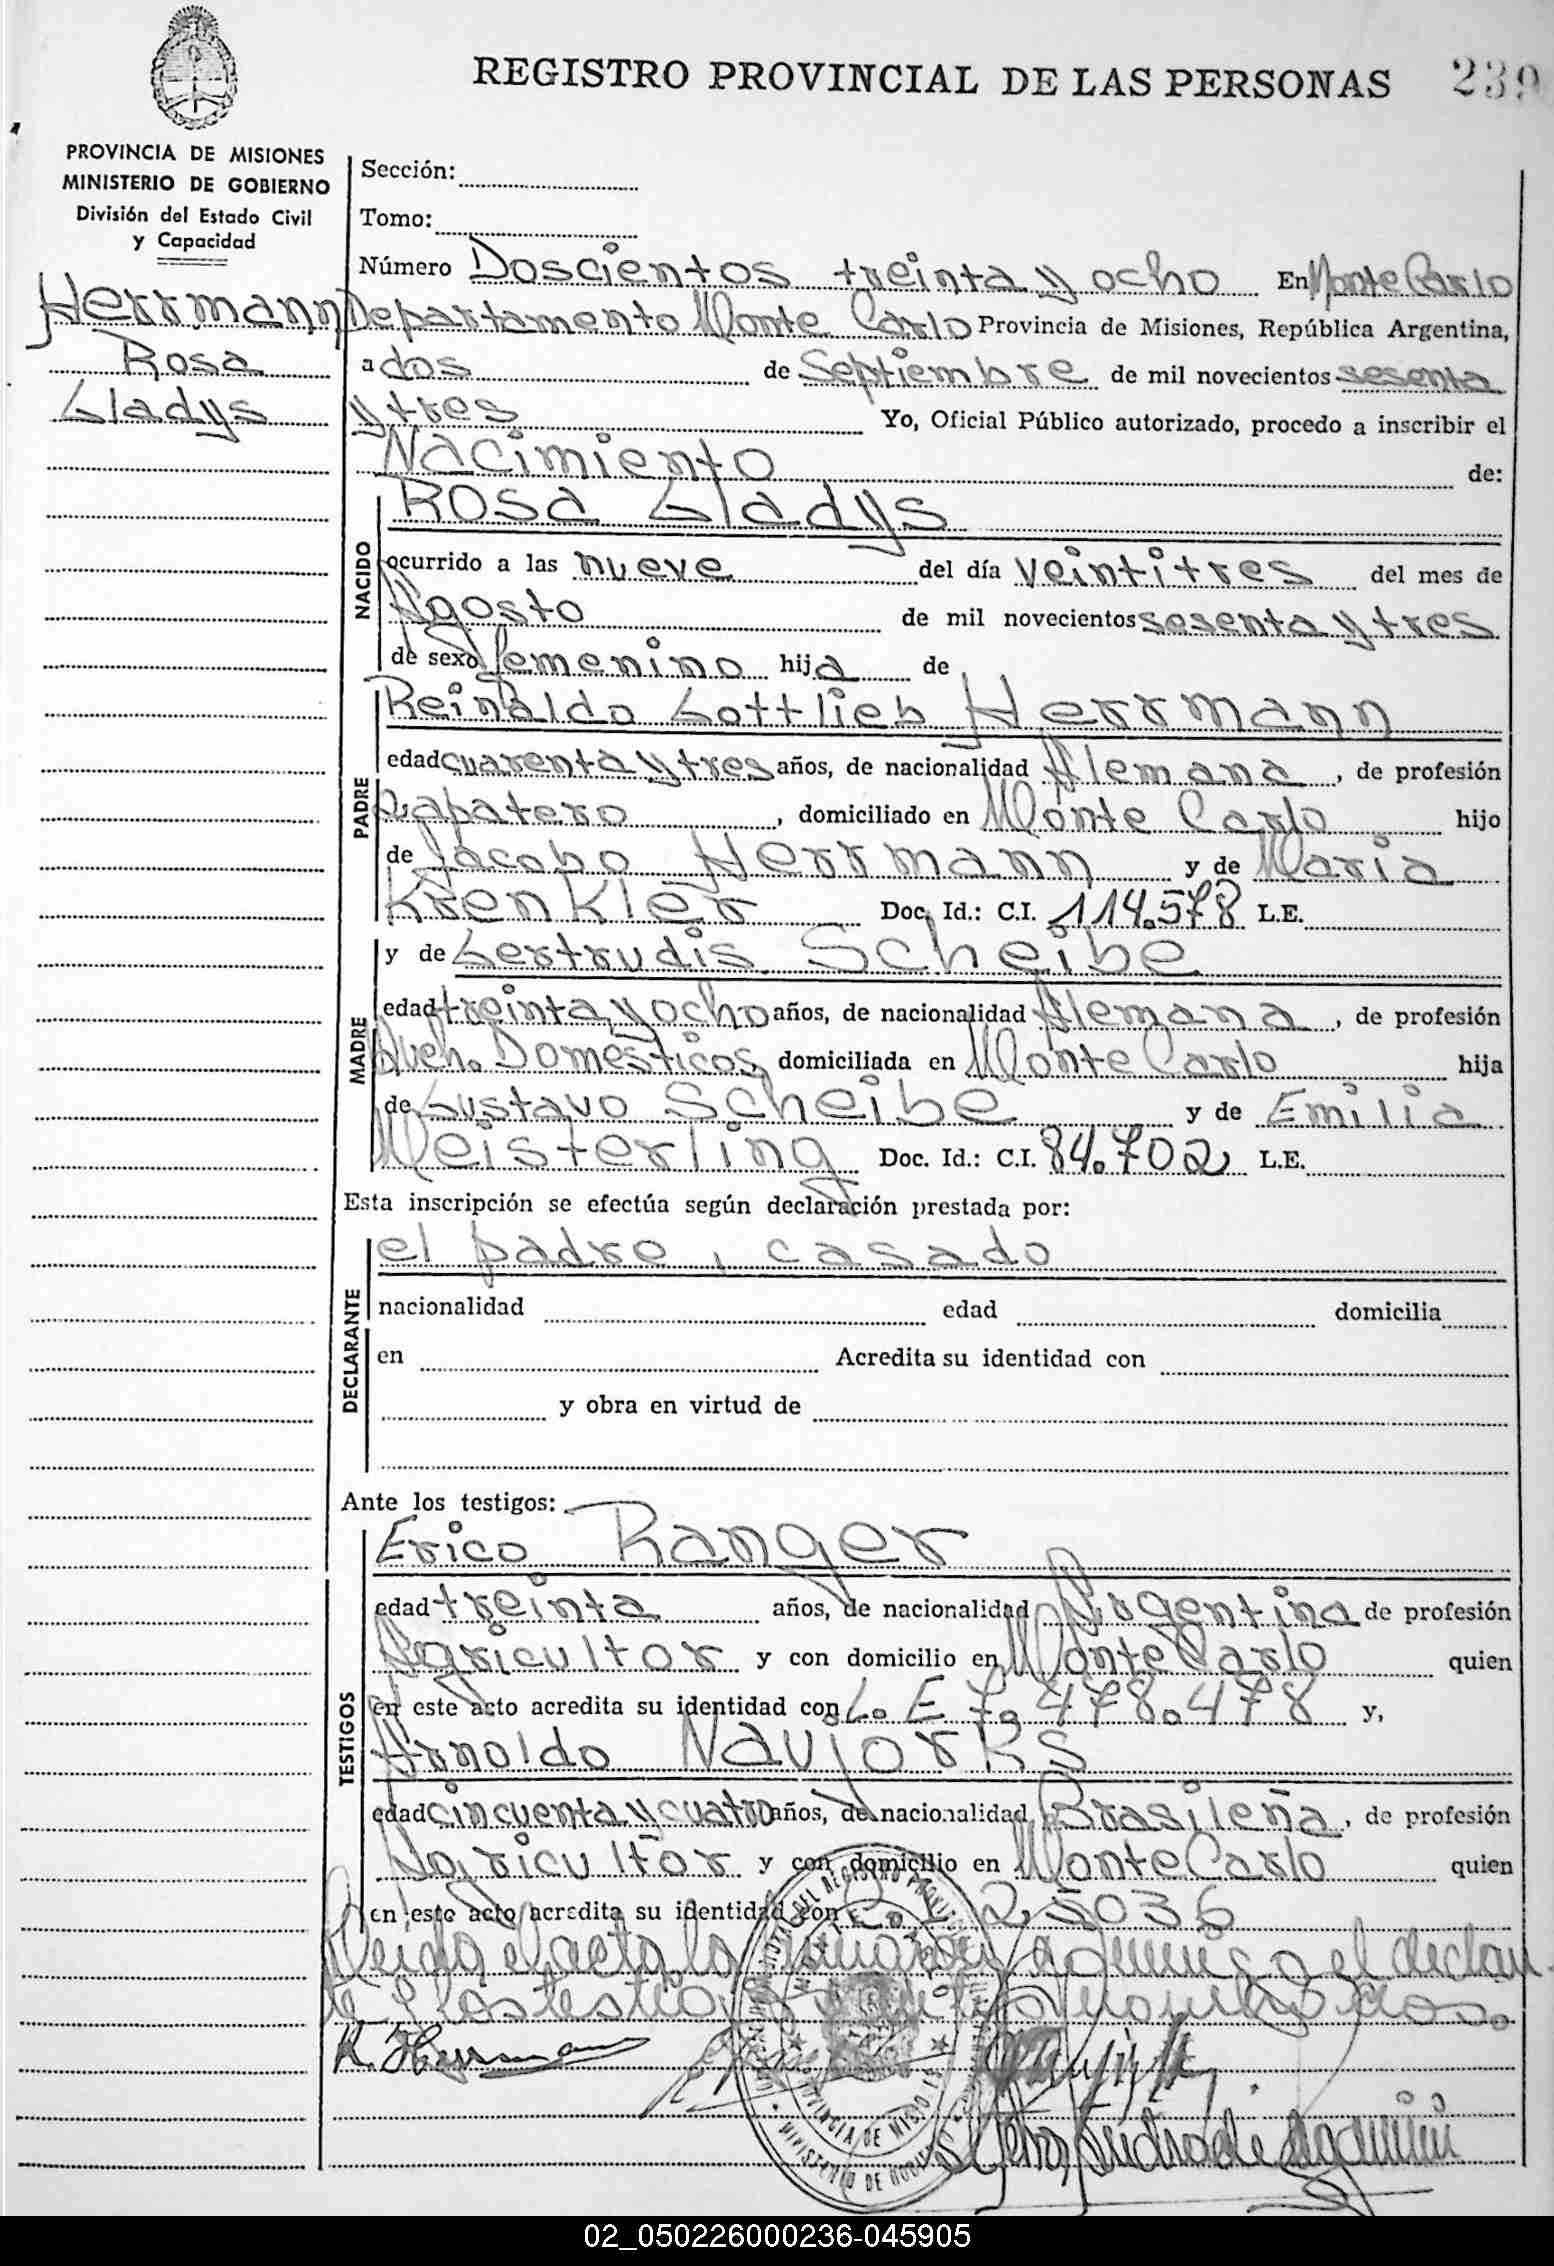 REGISTRO PROVINCIAL DE LAS PERSONAS 239
PROVINCIA DE MISIONES
MINISTERIO DE GOBIERNO
División del Estado Civil
y Capacidad
Herrmann
Rosa
Gladys
Sección:
Tomo:
Número Doscientos treinta y ocho En Monte Carlo
Departamento Monte Carlo Provincia de Misiones, República Argentina,
a dos de Septiembre de mil novecientos sesenta
y tres Yo, Oficial Público autorizado, procedo a inscribir el
Nacimiento de:
NACIDO
Rosa Gladys
ocurrido a las nueve del día veintitres del mes de
Agosto de mil novecientos sesenta y tres
de sexo femenino hija de
PADRE
Reinaldo Gottlieb Herrmann
edad cuarenta y tres años, de nacionalidad Alemana, de profesión
Zapatero, domiciliado en Monte Carlo hijo
de Jacobo Herrmann y de Maria
Krenkler Doc. Id.: C.I. 114.578 L.E.
MADRE
y de Gertrudis Scheibe
edad treinta y ocho años, de nacionalidad Alemana, de profesión
Queh. Domesticos, domiciliada en Monte Carlo hija
de Gustavo Scheibe y de Emilia
Meisterling Doc. Id.: C.I. 84.702 L.E.
Esta inscripción se efectúa según declaración prestada por:
DECLARANTE
el padre, casado
nacionalidad edad domicilia
en Acredita su identidad con
y obra en virtud de
Ante los testigos:
TESTIGOS
Erico Ranger
edad treinta años, de nacionalidad Argentina de profesión
Agricultor y con domicilio en Monte Carlo quien
en este acto acredita su identidad con L. E 7. 478.478 y,
Arnoldo Naujorks
edad cincuenta y cuatro años, de nacionalidad Brasileña, de profesión
Agricultor y con domicilio en Monte Carlo quien
en este acto acredita su identidad con C. I. 25036
Leida el acta la firman conmigo el declaran
te y los testigos antes nombrados.
R. Herrmann
PROVINCIA DE MISIONES
MINISTERIO DE GOBIERNO
02_050226000236-045905